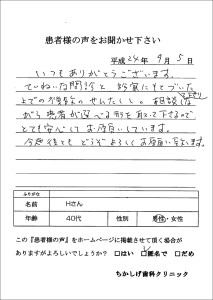 患者様の声をお聞かせ下さい
平成24年9月5日
いつもありがとうございます。
ていねいな問診と
上での
ながら患者が選べる形を
とても安心してお
今後ともどうぞよろしくお願い致します。
ふりがな
名前 Hさん
年齢 40代 性別 男性・女性
この『患者様の声』をホームページに掲載させて頂く場合が
ありますがよろしいでしょうか? □はい □匿名で □だめ
ちかしげ歯科クリニック